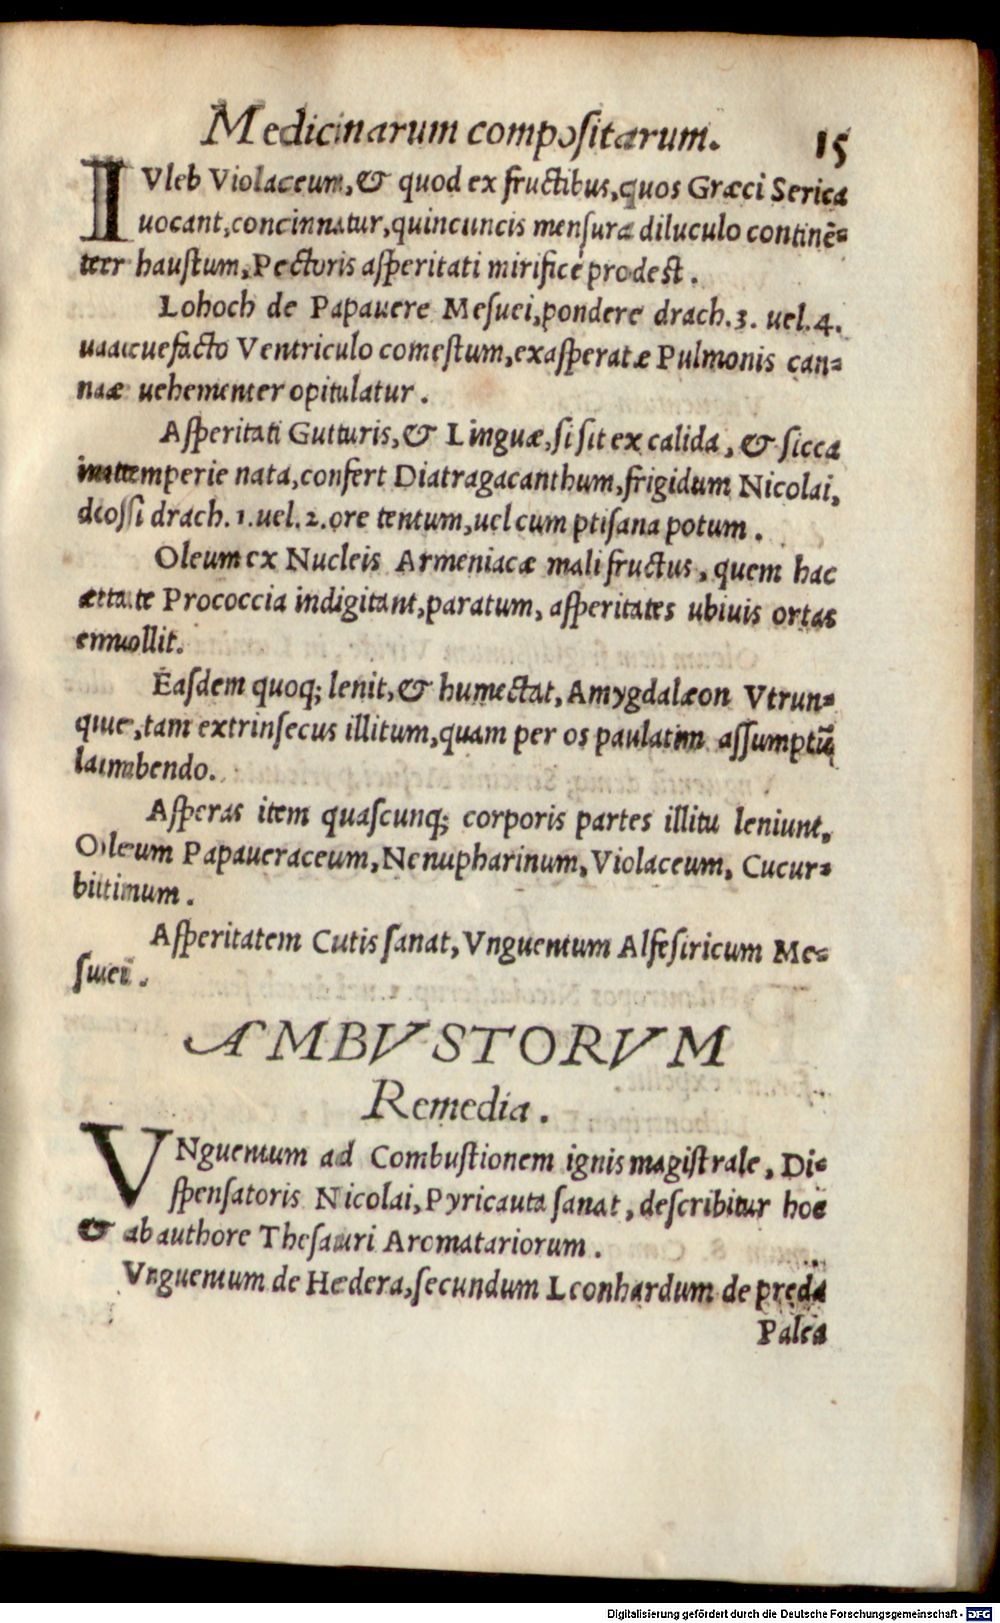 Medicinarum compositarum. 15
IVleb Violaceum, & quod ex fructibus, quos Græci Serica
uocant, concinnatur, quincuncis mensura diluculo continē-
ter haustum, Pectoris asperitati mirificè prodest.
Lohoch de Papauere Mesuei, pondere drach. 3. uel. 4.
uacuefacto Ventriculo comestum, exasperatæ Pulmonis can-
næ uehementer opitulatur.
Asperitati Gutturis, & Linguæ, si sit ex calida, & sicca
intemperie nata, confert Diatragacanthum, frigidum Nicolai,
dossi drach. 1. uel. 2. ore tentum, uel cum ptisana potum.
Oleum ex Nucleis Armeniacæ mali fructus, quem hac
ætate Prococcia indigitant, paratum, asperitates ubiuis ortas
emollit.
Easdem quoq; lenit, & humectat, Amygdalæon Vtrun-
que, tam extrinsecus illitum, quam per os paulatim assumptū
lambendo.
Asperas item quascunq; corporis partes illitu leniunt,
Oleum Papaueraceum, Nenupharinum, Violaceum, Cucur-
bitinum.
Asperitatem Cutis sanat, Vnguentum Alfesiricum Me-
suei.
AMBVSTORVM
Remedia.
VNguentum ad Combustionem ignis magistrale, Di-
spensatoris Nicolai, Pyricauta sanat, describitur hoc
& ab authore Thesauri Aromatariorum.
Vnguentum de Hedera, secundum Leonhardum de preda
Palea
Digitalisierung gefördert durch die Deutsche Forschungsgemeinschaft - DFG